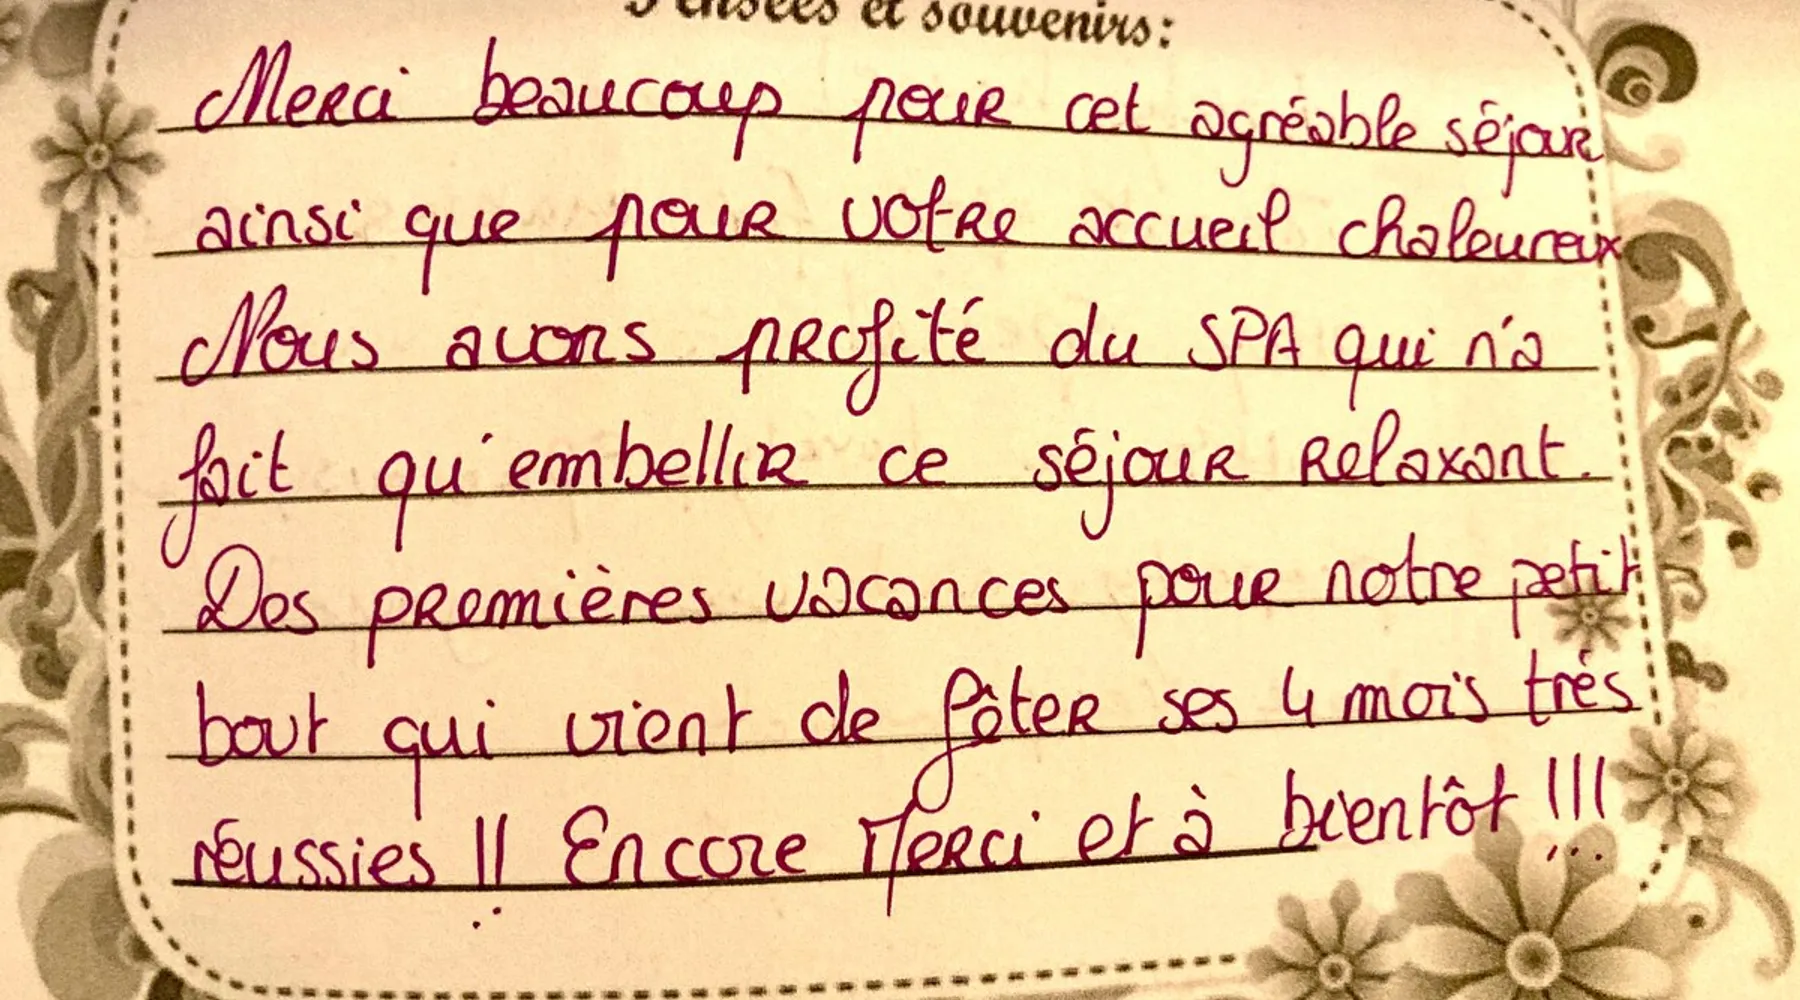 Pensées et souvenirs:
Merci beaucoup pour cet agréable séjour
ainsi que pour votre accueil chaleureux
Nous avons profité du SPA qui n'a
fait qu'embellir ce séjour relaxant.
Des premières vacances pour notre petit
bout qui vient de fêter ses 4 mois très
réussies !! Encore Merci et à bientôt !!!